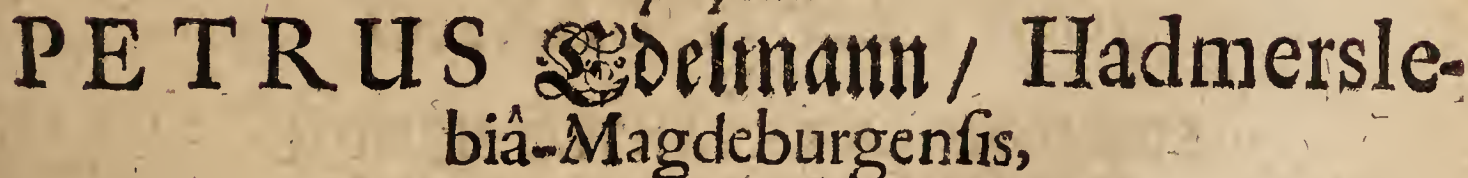 PETRUS Edelmann / Hadmersle-
biâ-Magdeburgenſis,